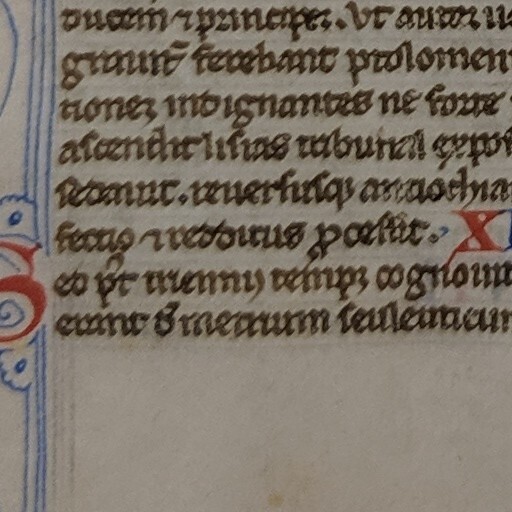 ducem ⁊ principem. Ut autem
grauit̾ ferebant ptolomen
tiones indignantes ne forte
ascendit lisias tribunal expos
sedauit. reuersusqꝫ antiochia
fectio ⁊ reditus ꝓcessit. X
Sed pꝰt triennij tempꝰ cognouit
erant Sʒ metrum seuleucum